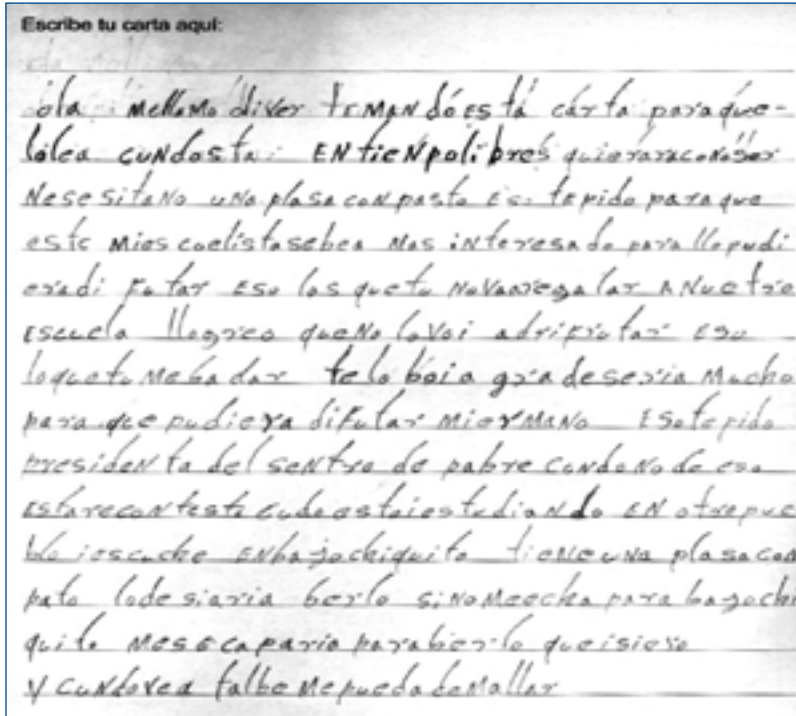 Escribe tu carta aquí:
óla mellamo diver temandó está cárta para que-
lólea cundosta: ENtieNpolibres quieraraconoser
Nesesitano una plasa con pasto Es. tepido para que
este mies coelistasebea mas interesado para llo pudi
eradi Futar Eso los quetu novanregalar a Nuetra
Escuela llogreo queno lo voi adrifrutar Eso
loquetu meba dar telo boia gradeseria mucho
para que pudiera difutar miermano Esotepido
presidenta del sentro de pabre condono de eso
Estarecontestu cudo estoiestudiando en otrepue
blo iescuche enbajochiquito tieneuna plasa con
pato lodesiaria berlo sinomeecha para bajochi
quito mesecaparia paraberlo queisiero
y cundovea talbe mepueda demallar